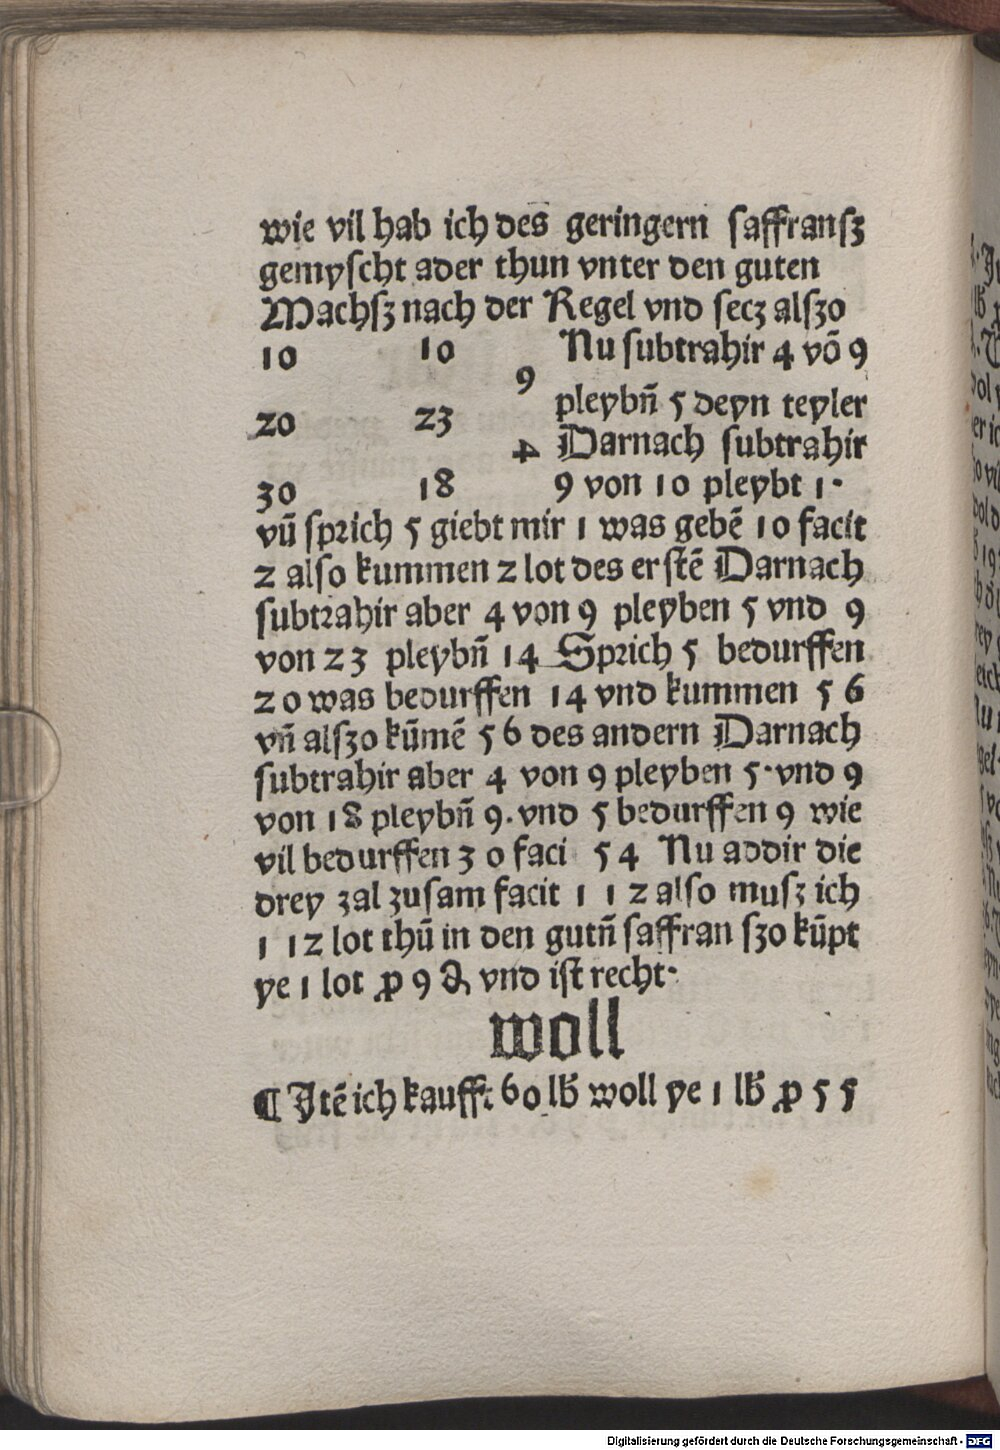 wie vil hab ich des geringern saffransz
gemyscht ader thun vnter den guten
Machsz nach der Regel vnd secz alszo
10 10 Nu subtrahir 4 võ 9
9
pleybñ 5 deyn teyler
20 23
4 Darnach subtrahir
30 18 9 von 10 pleybt 1·
vñ sprich 5 giebt mir 1 was gebẽ 10 facit
2 also kummen 2 lot des erstẽ Darnach
subtrahir aber 4 von 9 pleyben 5 vnd 9
von 23 pleybñ 14 Sprich 5 bedurffen
20 was bedurffen 14 vnd kummen 56
vñ alszo kũmẽ 56 des andern Darnach
subtrahir aber 4 von 9 pleyben 5·vnd 9
von 18 pleybñ 9·vnd 5 bedurffen 9 wie
vil bedurffen 30 faci 54 Nu addir die
drey zal zusam facit 112 also musz ich
112 lot thũ in den gutñ saffran szo kũpt
ye 1 lot ꝓ 9 ₰ vnd ist recht·
woll
¶ Jtẽ ich kauff: 60 lb̃ woll ye 1 lb̃ ꝓ 55
Digitalisierung gefördert durch die Deutsche Forschungsgemeinschaft - DFG